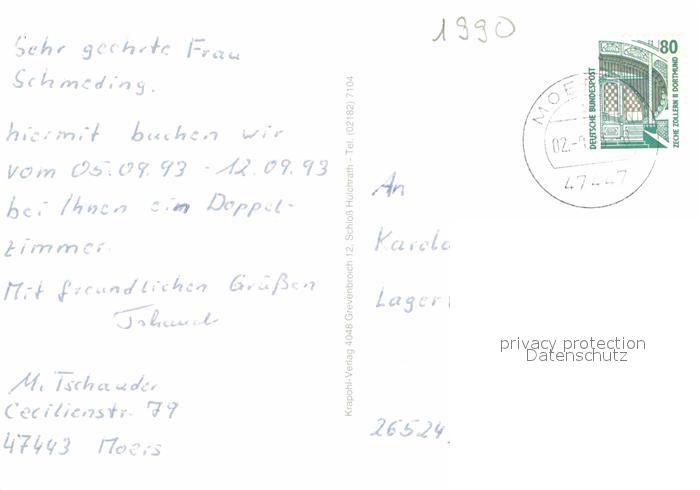 1990
Sehr geehrte Frau
Schmeding.
hiermit buchen wir
vom 05.09.93 - 12.09.93
bei Ihnen ein Doppel-
zimmer.
Mit freundlichen Grüßen
M. Tschauder
Cecilienstr. 79
47443 Moers
Krapohl-Verlag 4048 Grevenbroich 12, Schloß Hülchrath - Tel. (02182) 7104
80
DEUTSCHE BUNDESPOST
ZECHE ZOLLERN II DORTMUND
02.-
47447
An
26524
privacy protection
Datenschutz